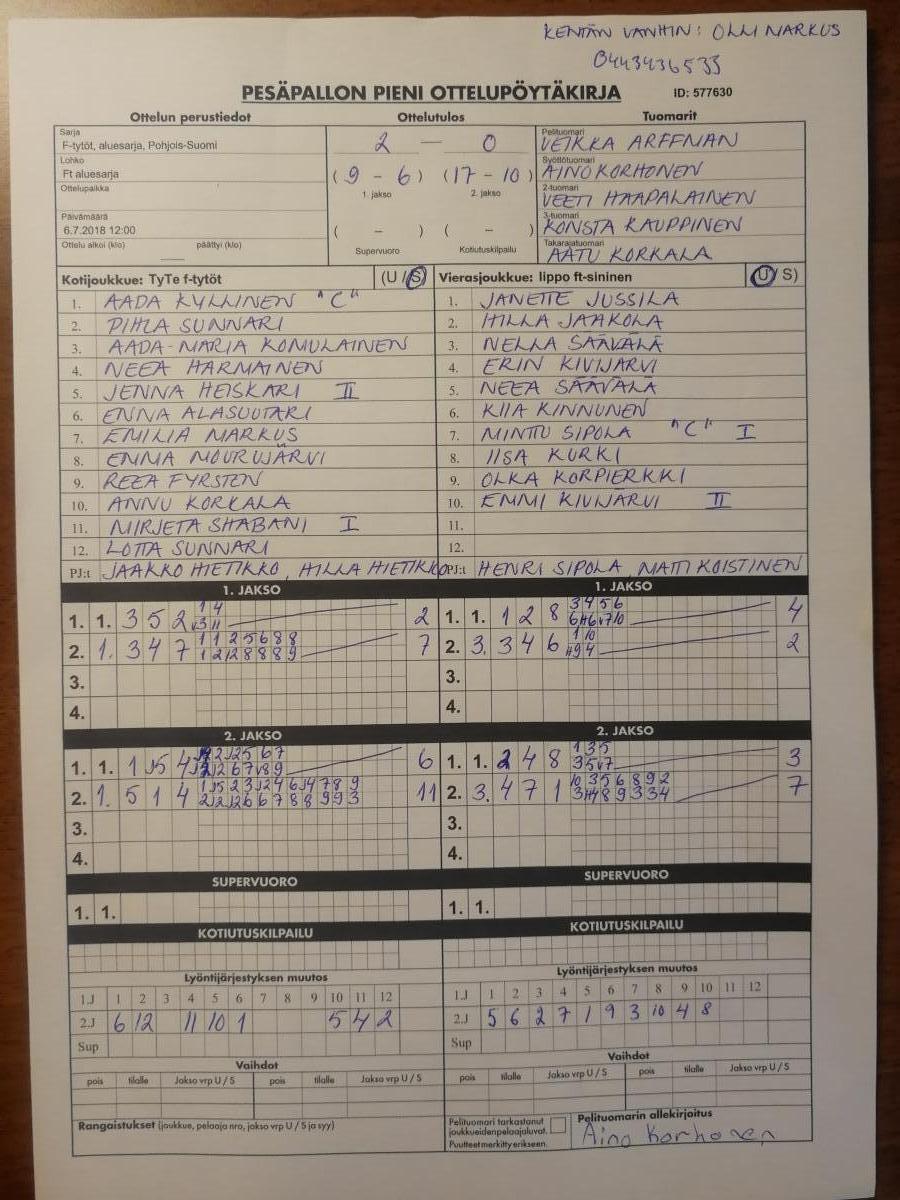 KENTÄN VANHIN: OLLI MARKUS
0443436533
PESÄPALLON PIENI OTTELUPÖYTÄKIRJA ID: 577630
Ottelun perustiedot Ottelutulos Tuomarit
Sarja
F-tytöt, aluesarja, Pohjois-Suomi
Lohko
Ft aluesarja
Ottelupaikka
Päivämäärä
6.7.2018 12:00
Ottelu alkoi (klo) päättyi (klo)
2 — 0
(9 - 6) (17 - 10)
1. jakso 2. jakso
( - ) ( - )
Supervuoro Kotiutuskilpailu
Pelituomari
VEIKKA ARFFMAN
Syöttötuomari
AINO KORHONEN
2-tuomari
VEETI HAAPALAINEN
3-tuomari
KONSTA KAUPPINEN
Takarajatuomari
AATU KORKALA
Kotijoukkue: TyTe f-tytöt (U / S)
1. AADA KYLLINEN "C"
2. PIHLA SUNNARI
3. AADA-MARIA KOMULAINEN
4. NEEA HARMAINEN
5. JENNA HEISKARI II
6. ENNA ALASUUTARI
7. EMILIA MARKUS
8. EMMA MOURUJÄRVI
9. REEA FYRSTEN
10. ANNU KORKALA
11. MIRJETA SHABANI I
12. LOTTA SUNNARI
PJ:t JAAKKO HIETIKKO, HILLA HIETIKKO
Vierasjoukkue: lippo ft-sininen (U / S)
1. JANETTE JUSSILA
2. HILLA JAAKOLA
3. NELLA SÄÄVÄLÄ
4. ERIN KIVIJÄRVI
5. NEEA SÄÄVÄLÄ
6. KIIA KINNUNEN
7. MINTTU SIPOLA "C" I
8. IISA KURKI
9. OLKA KORPIERKKI
10. EMMI KIVIJÄRVI II
11.
12.
PJ:t HENRI SIPOLA, MATTI KOISTINEN
1. JAKSO 1. JAKSO
1. 1. 3 5 2 2
2. 1. 3 4 7 1 1 2 5 6 8 8 7
3.
4.
1. 1. 1 2 8 3 4 5 6 4
2. 3. 3 4 6 1 10 2
3.
4.
2. JAKSO 2. JAKSO
1. 1. 1 5 4 6
2. 1. 5 1 4 11
3.
4.
1. 1. 2 4 8 1 3 5 3
2. 3. 4 7 1 10 3 5 6 8 9 2 7
3.
4.
SUPERVUORO SUPERVUORO
1. 1. 1. 1.
KOTIUTUSKILPAILU KOTIUTUSKILPAILU
Lyöntijärjestyksen muutos
1.J 1 2 3 4 5 6 7 8 9 10 11 12
2.J 6 12 11 10 1 5 4 2
Sup
Vaihdot
pois tilalle Jakso vrp U / S pois tilalle Jakso vrp U / S
Rangaistukset (joukkue, pelaaja nro, jakso vrp U / S ja syy)
Lyöntijärjestyksen muutos
1.J 1 2 3 4 5 6 7 8 9 10 11 12
2.J 5 6 2 7 1 9 3 10 4 8
Sup
Vaihdot
pois tilalle Jakso vrp U / S pois tilalle Jakso vrp U / S
Pelituomari tarkastanut
joukkueiden pelaajaluvat.
Puutteet merkitty erikseen.
Pelituomarin allekirjoitus
Aino Korhonen